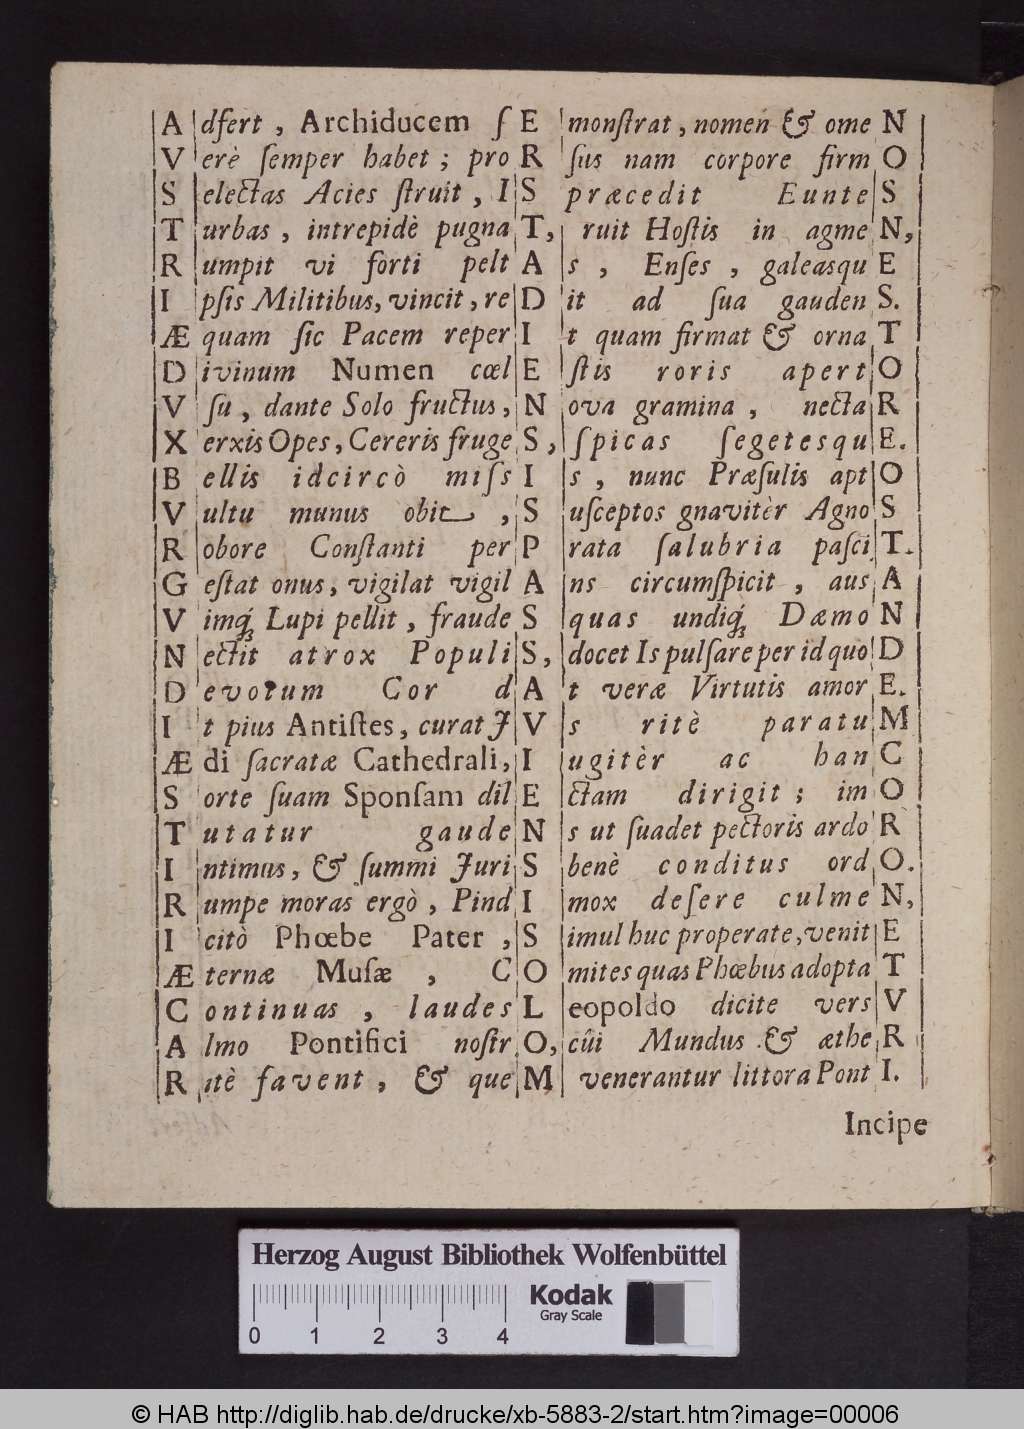 A dfert , Archiducem ſ E monſtrat , nomen & ome N
V erè ſemper habet ; pro R ſus nam corpore firm O
S electas Acies ſtruit , I S præcedit Eunte S
T urbas , intrepidè pugna T, ruit Hoſtis in agme N,
R umpit vi forti pelt A s , Enſes , galeasqu E
I pſis Militibus, vincit , re D it ad ſua gauden S.
Æ quam ſic Pacem reper I t quam firmat & orna T
D ivinum Numen cœl E ſtis roris apert O
V ſu , dante Solo fructus , N ova gramina , necta R
X erxis Opes , Cereris fruge S , ſpicas ſegetesqu E.
B ellis idcircò miſs I s , nunc Præſulis apt O
V ultu munus obit , S uſceptos gnavitèr Agno S
R obore Conſtanti per P rata ſalubria paſci T.
G eſtat onus , vigilat vigil A ns circumſpicit , aus A
V imq́ꝫ Lupi pellit , fraude S quas undiq́ꝫ Dæmo N
N ectit atrox Populi S, docet Is pulſare per id quo D
D evotum Cor d A t veræ Virtutis amor E.
I t pius Antiſtes , curat J V s ritè paratu M
Æ di ſacratæ Cathedrali , I ugitèr ac han C
S orte ſuam Sponſam dil E ctam dirigit ; im O
T utatur gaude N s ut ſuadet pectoris ardo R
I ntimus , & ſummi Juri S benè conditus ord O.
R umpe moras ergò , Pind I mox deſere culme N,
I citò Phœbe Pater , S imul huc properate , venit E
Æ ternæ Muſæ , C O mites quas Phœbus adopta T
C ontinuas , laudes L eopoldo dicite vers V
A lmo Pontifici noſtr O, cûi Mundus & æthe R
R itè favent , & que M venerantur littora Pont I.
Incipe
Herzog August Bibliothek Wolfenbüttel
0 1 2 3 4
Kodak
Gray Scale
© HAB http://diglib.hab.de/drucke/xb-5883-2/start.htm?image=00006